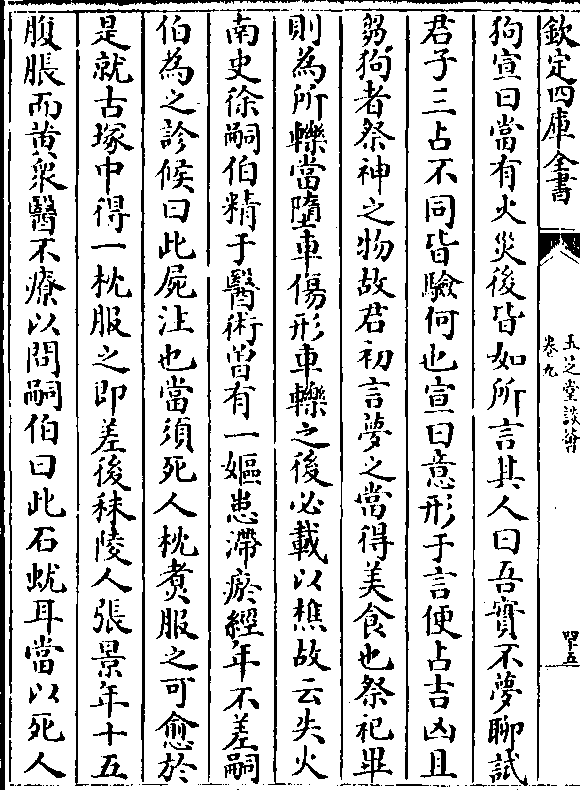 欽定四庫全書
玉芝堂談薈
卷九
四十五
狗宣曰當有火災後皆如所言其人曰吾實不夢聊試
君子三占不同皆驗何也宣曰意形于言便占吉凶且
芻狗者祭神之物故君初言夢之當得美食也祭祀畢
則為所轢當墮車傷形車轢之後必載以樵故云失火
南史徐嗣伯精于醫術曽有一嫗患滯瘀經年不差嗣
伯為之診候曰此屍注也當須死人枕煑服之可愈於
是就古塚中得一枕服之即差後秣陵人張景年十五
腹脹而黄衆醫不療以問嗣伯曰此石蚘耳當以死人